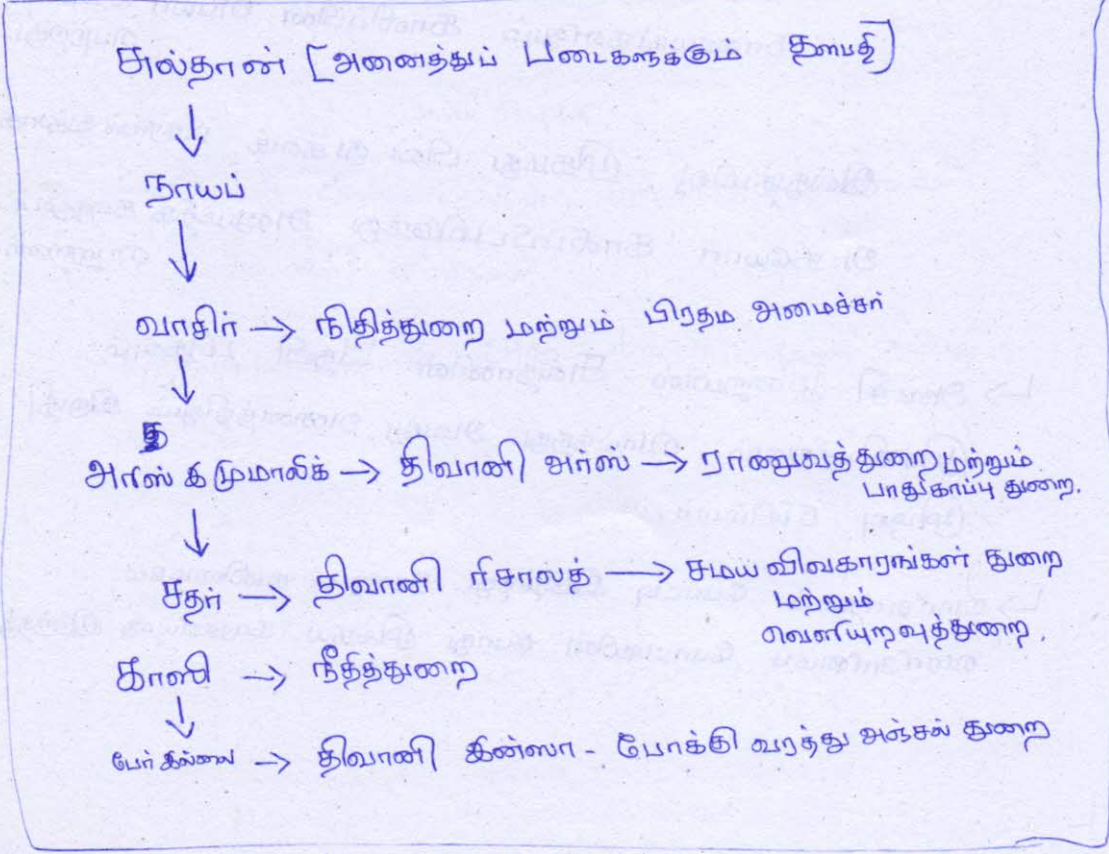 சுல்தான் [அனைத்துப் படைகளுக்கும் தளபதி]
↓
நாயப்
↓
வாசிர் → நிதித்துறை மற்றும் பிரதம அமைச்சர்
↓
அரிஸ் இ முமாலிக் → திவானி அர்ஸ் → ராணுவத்துறை மற்றும்
பாதுகாப்பு துறை.
↓
சதர் → திவானி ரிசாலத் → சமய விவகாரங்கள் துறை
மற்றும்
வெளியுறவுத்துறை.
காஸி → நீதித்துறை
↓
பேர் இல்லை → திவானி இன்ஸா - போக்கு வரத்து அஞ்சல் துறை